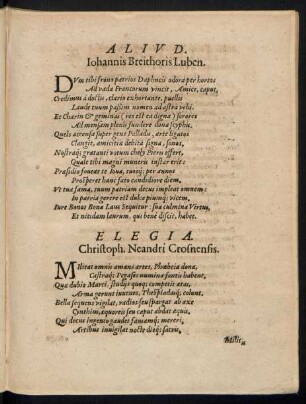 ALIVD.
Iohannis Breithoris Luben.
DVm tibi serius patrios Daphneis odora per hortos
Ad vada Francorum vincit, Amice, caput,
Credimus à doctis, claris exhortante, puellis
Laude tuum passim nomen ad astra vehi.
Et Charin & geminas (res est ea digna) sorores
Ad mensam plenis fundere dona scyphis,
Quels accensa super gens Pelladu, arte ligatos
Clangit, amicitia debita signa, sonos,
Nostraq; gratanti votum chelys Pieris offert,
Quale tibi magni muneris instar erit:
Præsidio foueat te Ioua, tuosq; per annos
Prosperet hanc fato condidione diem,
Vt tua fama, suum patriam decus impleat omnem:
In patria gerere est dulce piumq; vicem,
Iure Bonos Bona Laus Sequitur: sua culmina Virtus,
Et nitidam laurum, qui benè discit, habet.
ELEGIA.
Christoph. Neandri Crosnensis.
MIlitat omnis amans artes, Phœbeia dona,
Castraq; Pegasei numina fontis habent,
Qua dubiis Marti, studiis quoq; competit ætas,
Arma gerunt iuuenes, Thespiadasq; colunt.
Bella sequens vigilat, radios seu spargat ab axe
Cynthius, æquoreis seu caput abdat aquis,
Qui decus ingenuo gaudet famamq; mereri,
Artibus inuigilat nocte dieq; sacris,
Militis